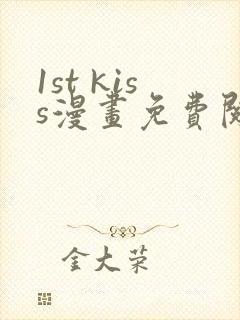 1st kis
s漫畫免費閱
金大荣